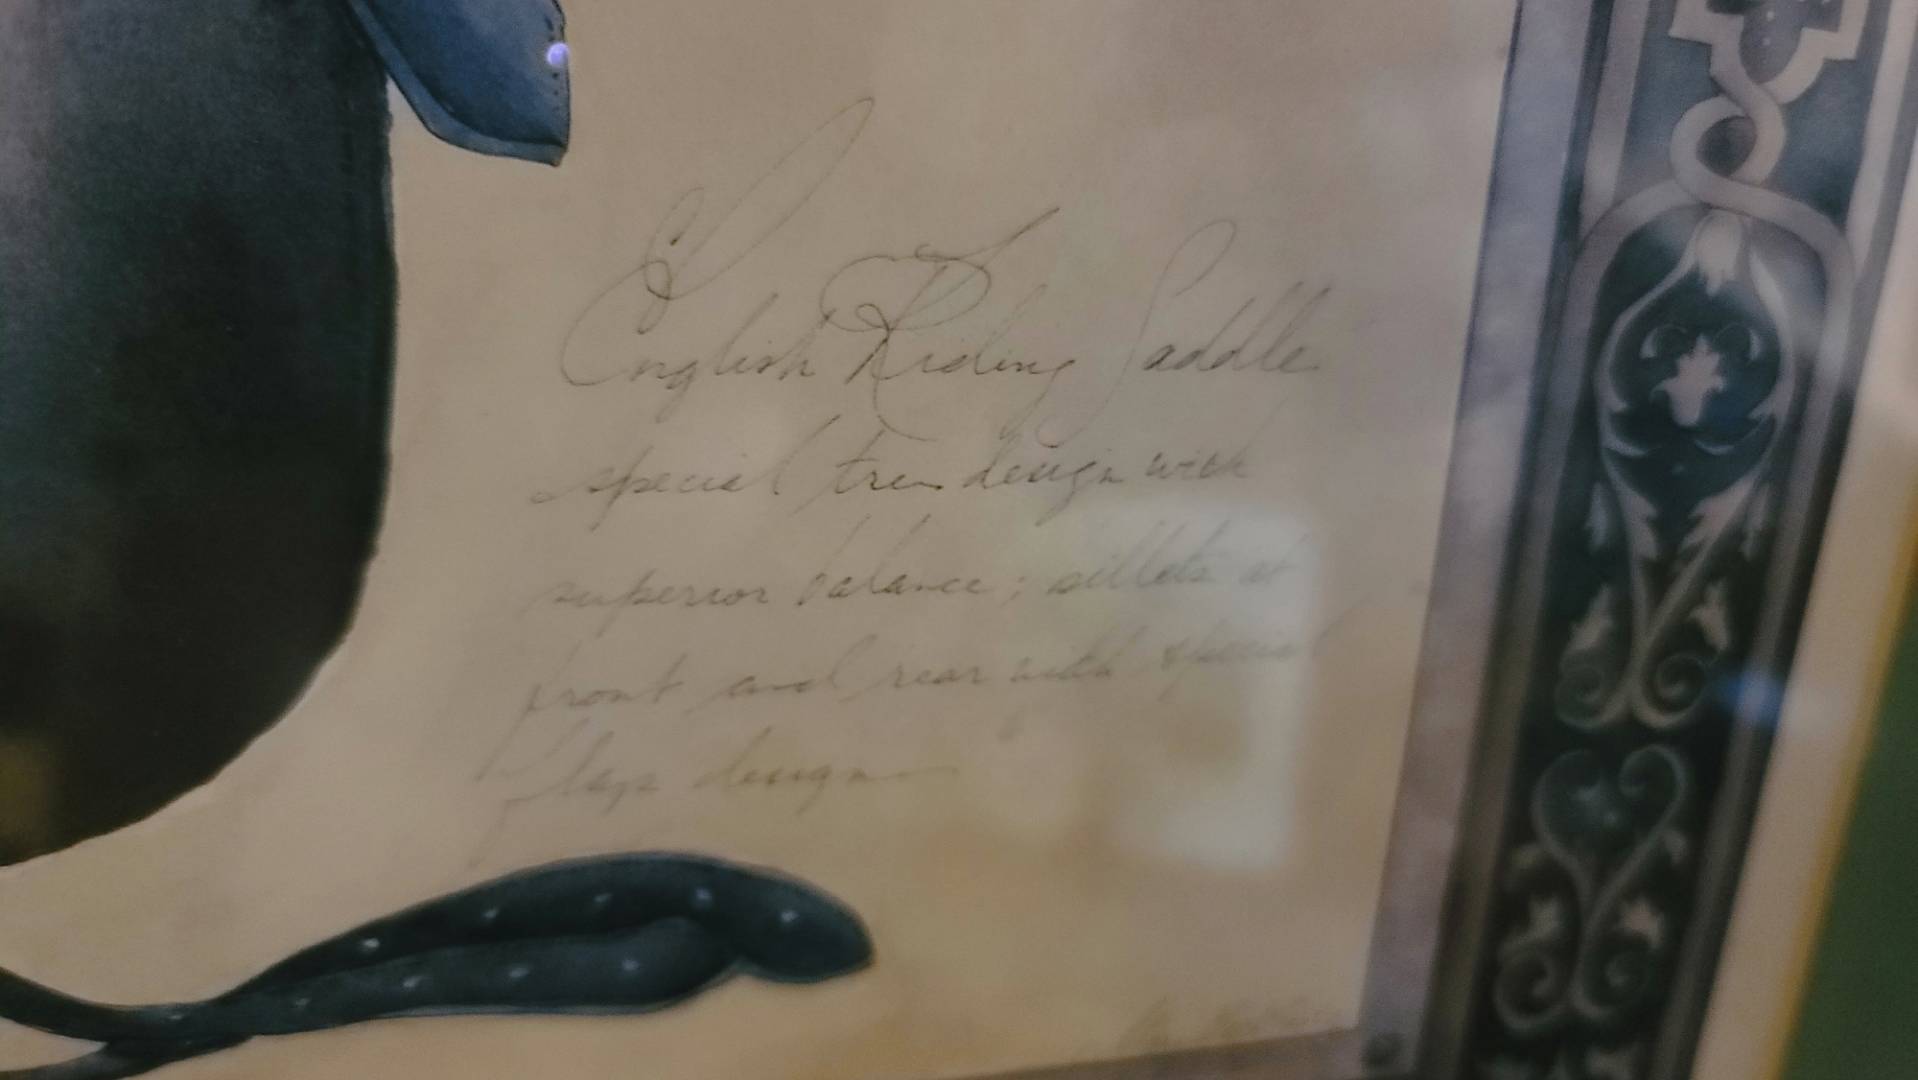 English Riding Saddle
special tree design with
superior balance; billets at
front and rear with special
flap design